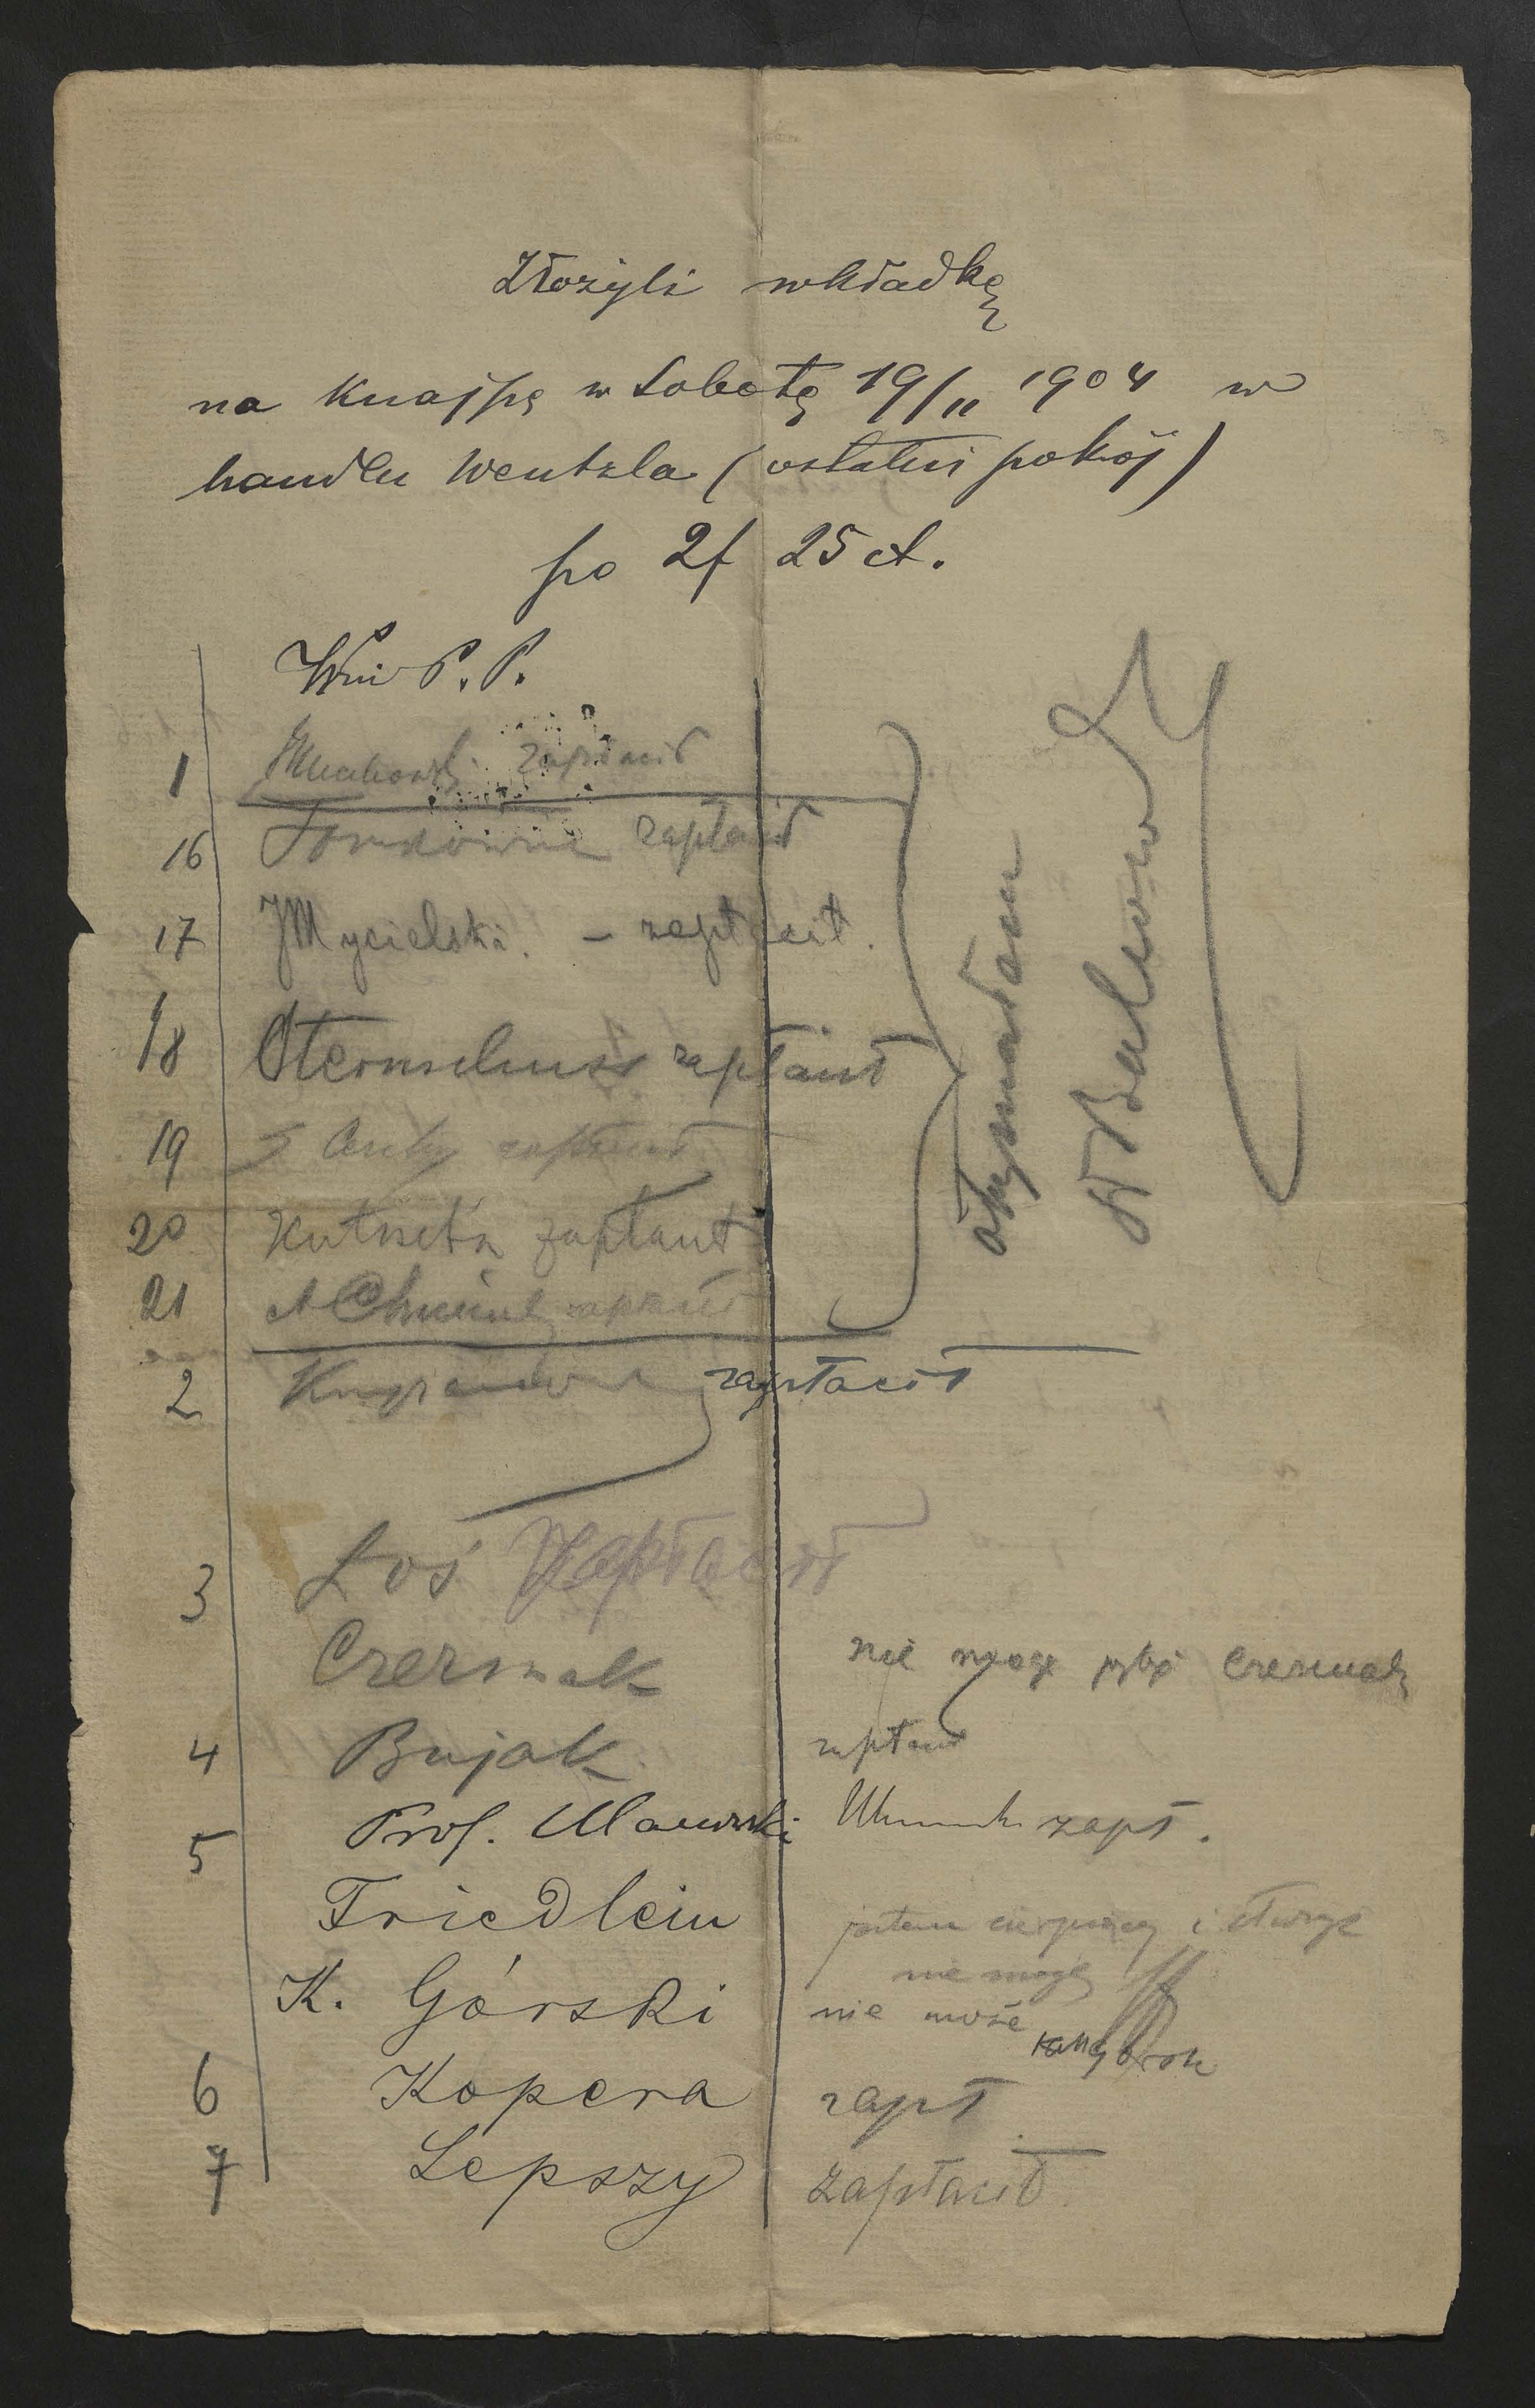 Złożyli wkładkę
na Knajpę w Sobotę 19/II 1904 w
handlu Wentzla (ostatni pokój)
po 2f 25 ct.
Wni P. P.
1 zapłacił
16 Tomkowicz zapłacił
17 JMycielski. – zapłacił.
18 Sternschuss zapłacił
19 zapłacił
20 Kutrzeba zapłacił
21 A Chmiel zapłacił
otrzymałam
2 zapłacił
3 Łoś Zapłacił
Czermak nie mogę być Czermak
4 Bujak zapłacił
5 Prof. Ulanowski zapł.
Friedlein jestem cierpiący i służyć
nie mogę
K. Górski nie może
6 Kopera zapł
7 Lepszy zapłacił